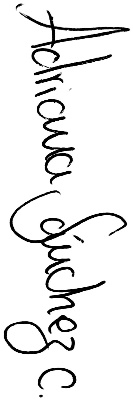 Adriana Sánchez C.